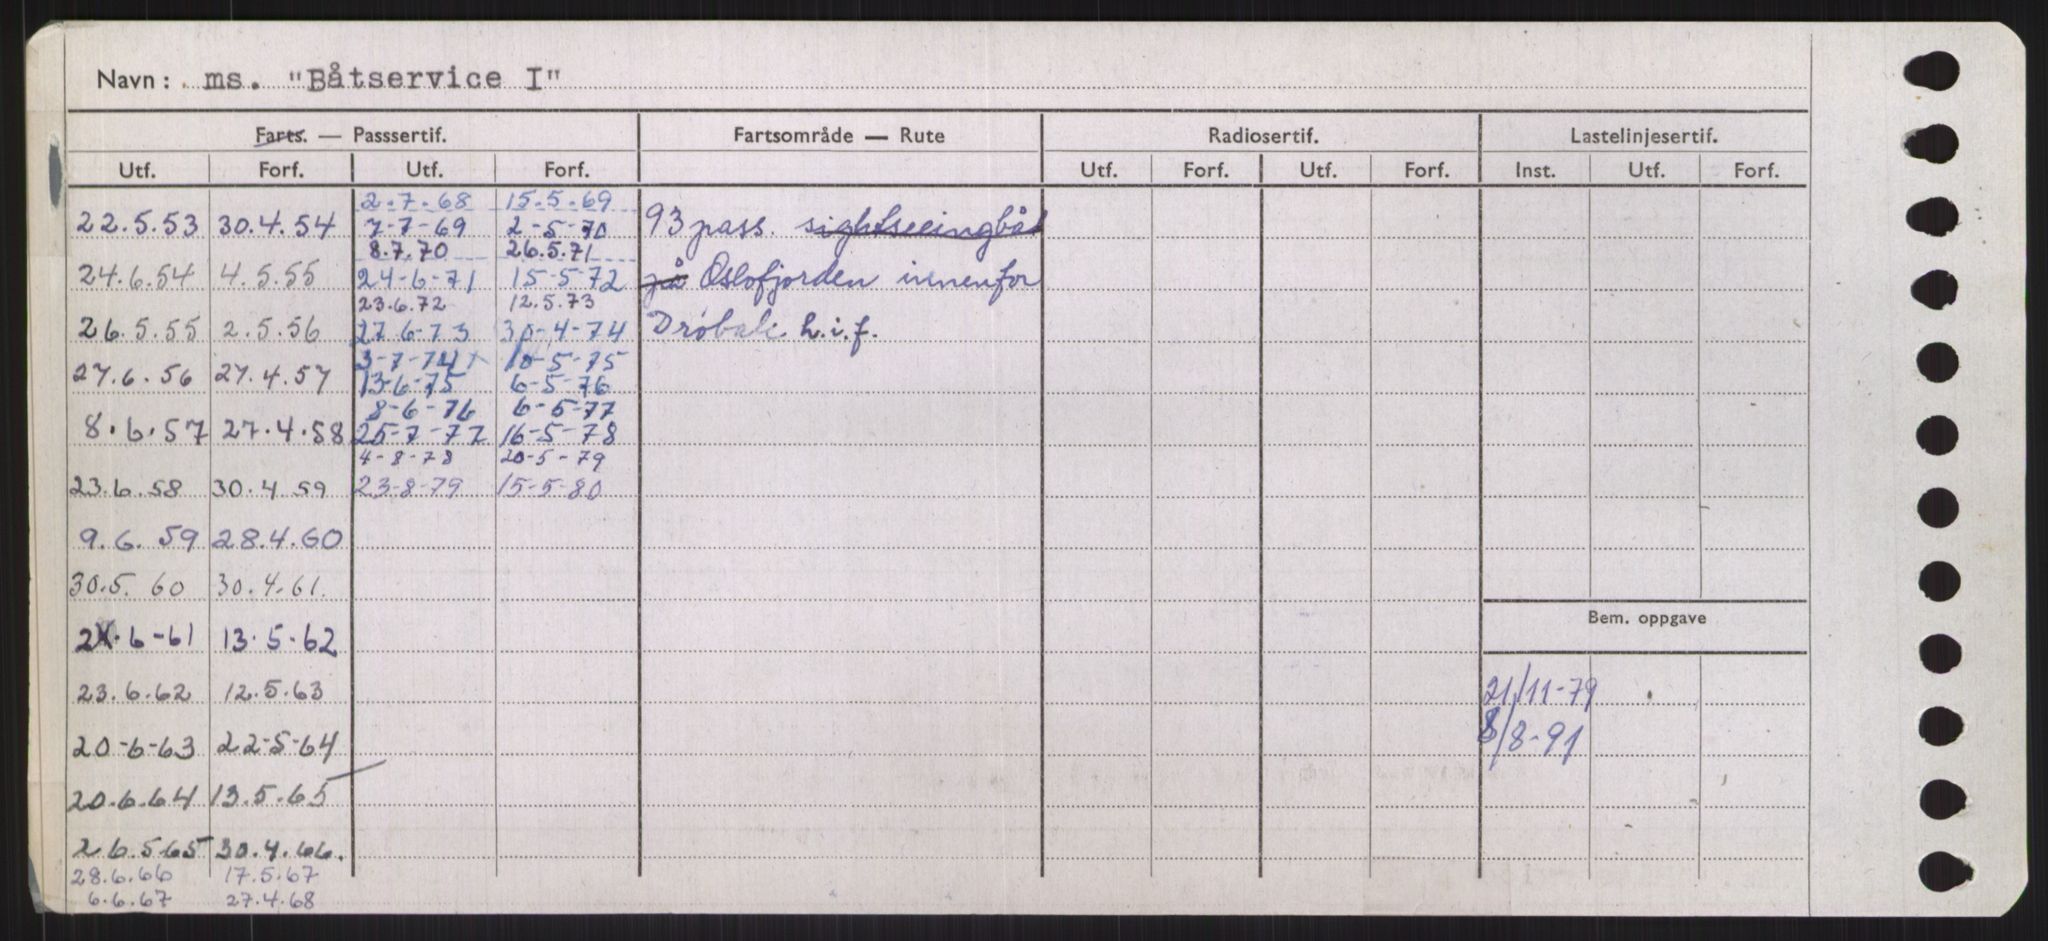 Navn: ms. "Båtservice I"
Farts. — Passsertif. Fartsområde — Rute Radiosertif. Lastelinjesertif.
Utf. Forf. Utf. Forf. Utf. Forf. Utf. Forf. Inst. Utf. Forf.
2.7.68 15.5.69
22.5.53 30.4.54 7-7-69 2-5-70 93 pass. sightseeingbåt
8.7.70 26.5.71
24.6.54 4.5.55 24-6-71 15-5-72 på Oslofjorden innenfor
23.6.72 12.5.73
26.5.55 2.5.56 27.6-73 30-4-74 Drøbak h.i.f.
3-7-74 10-5-75
27.6.56 27.4.57 13-6-75 6-5-76
8-6-76 6-5-77
8.6.57 27.4.58 25-7-77 16-5-78
4-8-78 20-5-79
23.6.58 30.4.59 23-8-79 15-5-80
9.6.59 28.4.60
30.5.60 30.4.61.
2.6-61 13.5.62
Bem. oppgave
23.6.62 12.5.63 21/11-79
20-6-63 22-5-64 8/8-91
20.6.64 13.5.65
26.565 30.4.66.
28.6.66 17.5.67
6.6.67 27.4.68